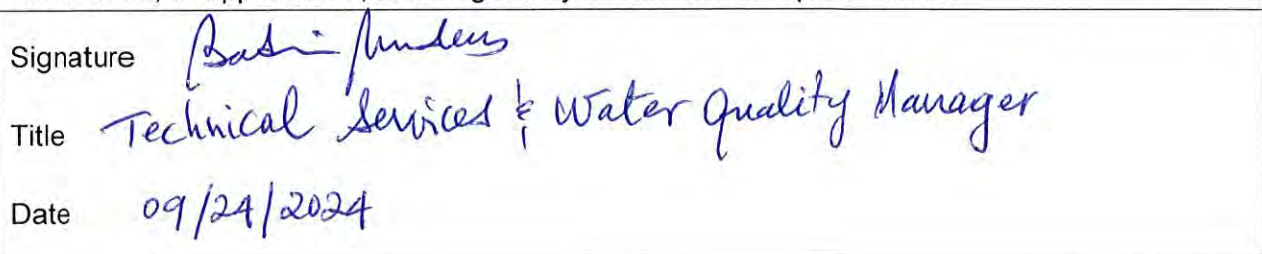 Signature
Title Technical Services & Water Quality Manager
Date 09/24/2024